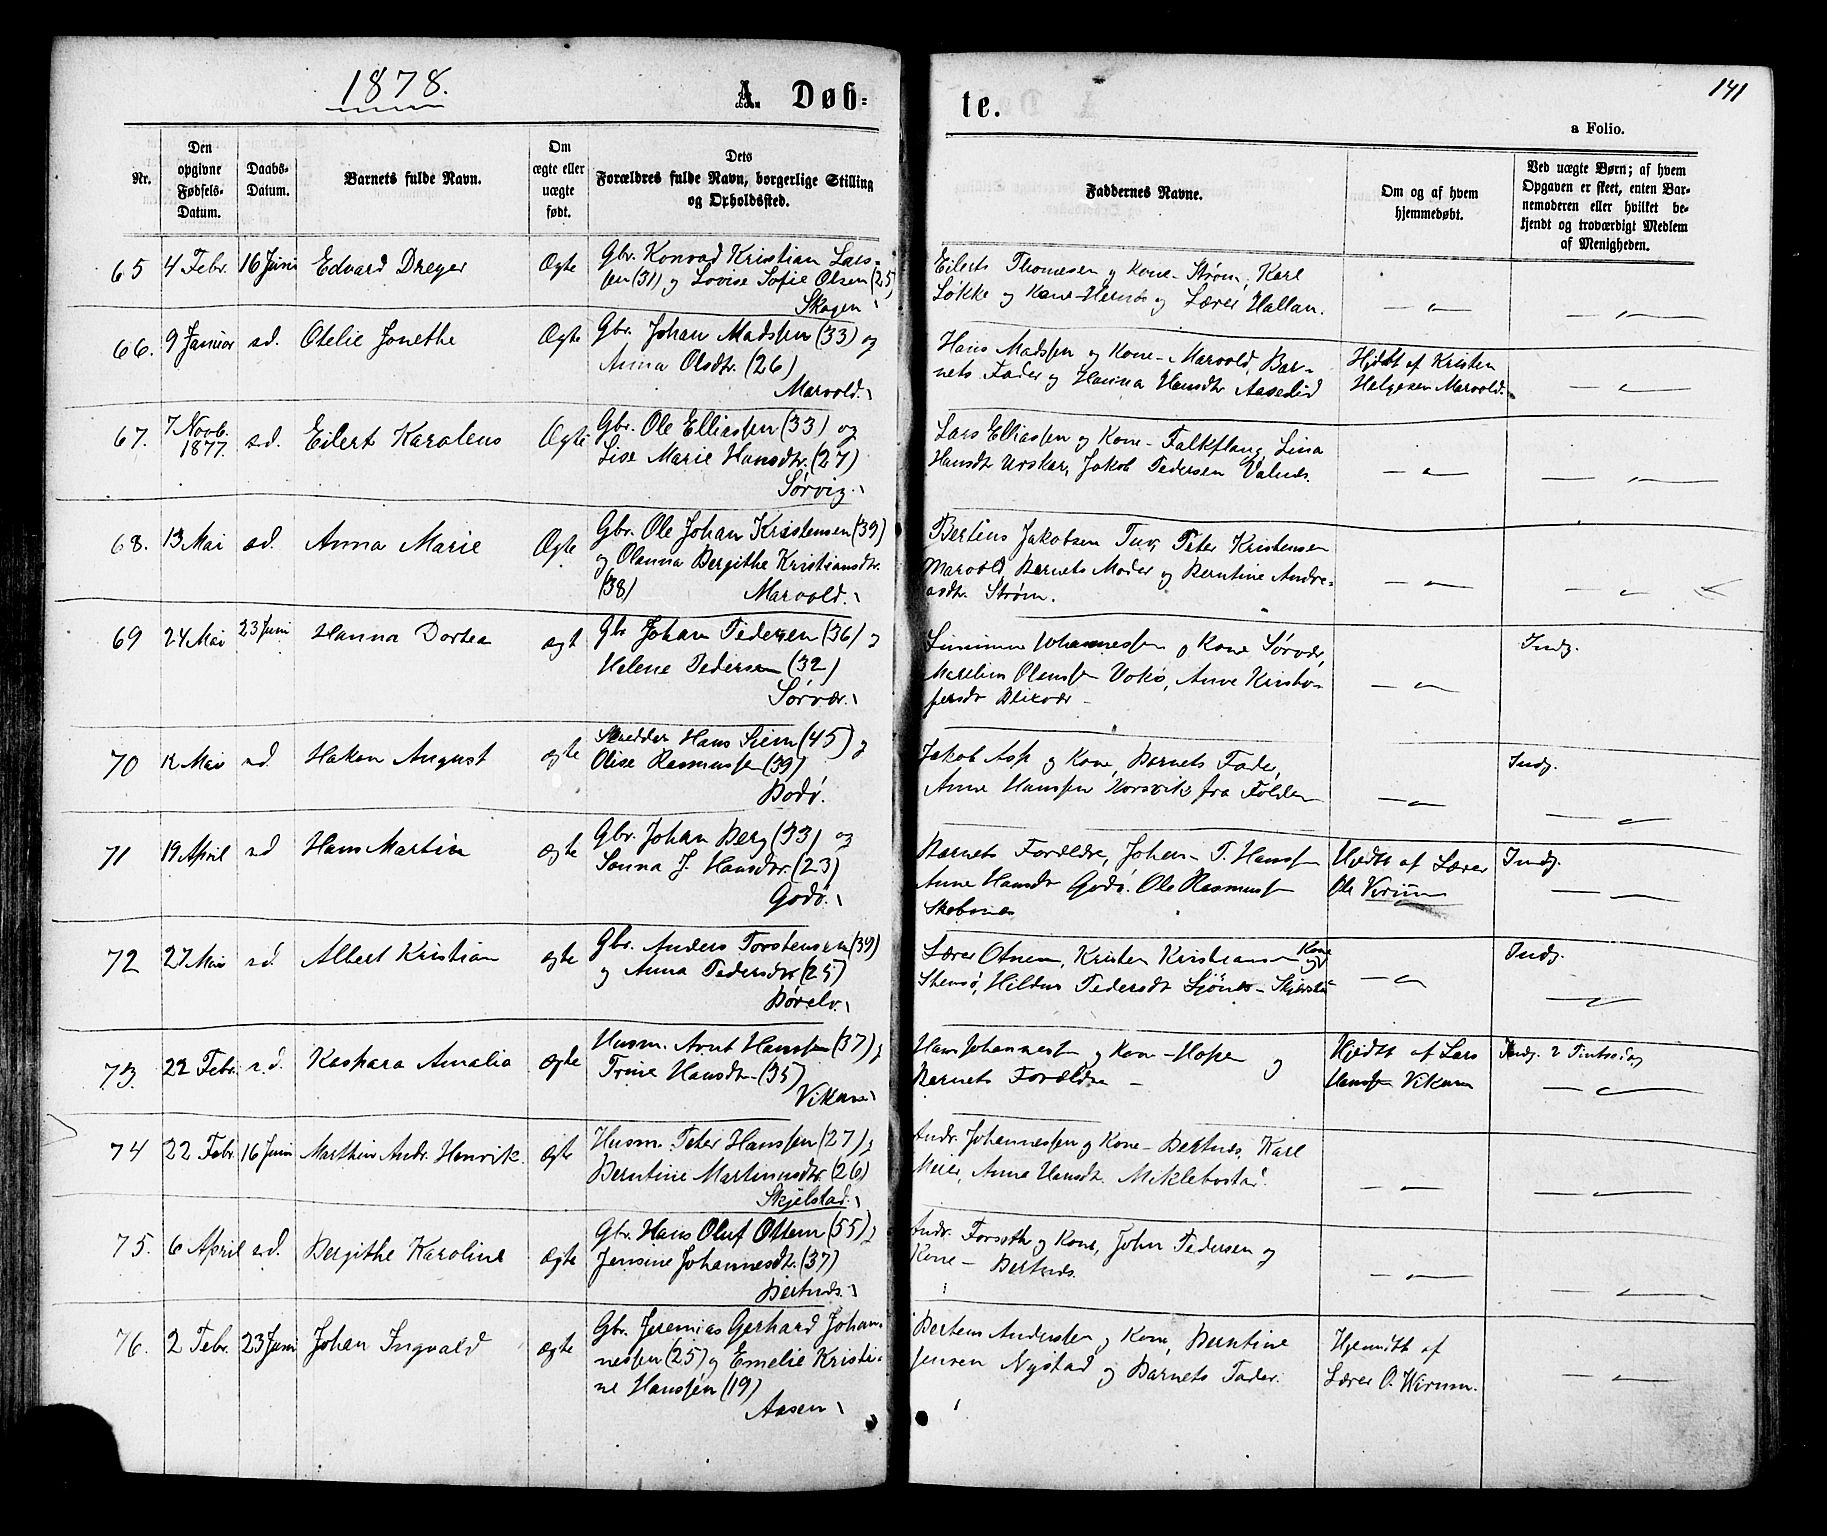 1878.
A. Døb-
te.
141
a Folio.
Nr.
Den
opgivne
Fødsels-
Datum.
Daabs-
Datum.
Barnets fulde Navn.
Om
ægte eller
uægte
født.
Dets
Forældres fulde Navn, borgerlige Stilling
og Opholdssted.
Faddernes Navne.
Om og af hvem
hjemmedøbt.
Ved uægte Børn; af hvem
Opgaven er skeet, enten Bar-
nemoderen eller hvilket be-
kjendt og troværdigt Medlem
af Menigheden.
65 4 Febr. 16 Juni Edvard Dreyer Ægte
Gbr. Konrad Kristian Lars-
sen (31) og Lovise Sofie Olsen (25)
Skagen
Eilert Thomesen og Kone - Strøm, Karl
Løkke og Kone - Hernæs og Lærer Hallan.
66. 9 Januar s.d. Otelie Jonethe Ægte
Gbr. Johan Madssen (33) og
Anna Olsdtr. (26)
Marvold.
Hans Madssen og Kone - Marvold, Bar-
nets Fader og Hanna Hansdtr Aaselid
Hjdbt af Kristen
Helgesen Marvold.
67. 7 Novb. 1877. s.d. Eilert Karolius Ægte
Gbr. Ole Elliassen (33) og
Lise Marie Hansdtr. (27)
Sørvig.
Lars Elliassen og Kone - Falkflaug, Lina
Hansdt Urskar, Jakob Pedersen Valnæs.
68. 13 Mai s.d. Anna Marie Ægte
Gbr. Ole Johan Kristensen (39)
og Olanna Bergithe Kristiansdtr.
(38) Marvold.
Bertius Jakobsen Tuv, Peter Kristensen
Marvold, Barnets Moder og Berntine Andre-
asdtr. Strøm.
69 24 Mai 23 Juni Hanna Dortea ægt
Gbr Johan Pedersen (36) og
Helene Pedersen (32)
Sørvær.
Johannessen og Kone Sørvær,
Olenssen Anne Kristo-
fersdt Blixvær -
Indg.
70 12 Mai s.d. Hakon August ægte
Skrædder Hans Siem (45) og
Olise Rasmussen (39)
Bodø.
Jakob Asp og Kone, Barnets Fader,
Anne Hanssen Korsvik fra Folden
Indg.
71 19 April s.d Hans Martin ægte
Gbr. Johan Berg (33) og
Sanna J. Hansdtr. (23)
Godø.
Barnets Forældre, Johan P. Hanssen
Anne Hansdt Godø. Ole Rasmussen
Hjdbt af Lærer
Ole Virum
Indg.
72 27 Mai s.d. Albert Kristian ægte
Gbr. Anders Torstensen (39)
og Anna Pedersdtr. (25)
Børelv.
Lærer Otnem, Kristen Kristiansen og Kone
Stensø, Pedersdt
Indg.
73. 22 Febr. s.d. Kaspara Amalia ægte
Husm. Arnt Hanssen (37) og
Trine Hansdtr (35)
Viken
Hans Johannessen og Kone - Hopen og
Barnets Forældre -
Hjdbt af Lars
Hanssen Viken
Indg.
74 22 Febr. 16 Juni Marthin Andr. Henrik. ægte
Husm. Peter Hanssen (27) og
Berntine Martinusdtr. (26)
Skjelstad.
Andr. Johannessen og Kone - Bertnæs, Karl
Meier, Anne Hansdt. Miklebostad.
75. 6 April s.d. Bergithe Karoline ægte
Gbr. Hans Oluf Ottem (55) og
Jensine Johannesdtr. (37)
Bertnæs.
Andr. Forseth og Kone, John Pedersen og
Kone - Bertnæs.
76. 2 Febr. 23 Juni Johan Ingvald ægte
Gbr. Jeremias Gerhard Johan-
nessen (25) og Emelie Kristi-
ne Hanssen (19)
Aasen
Berteus Anderssen og Kone, Berntine
Jensen Nystad og Barnets Fader.
Hjemdbt af
Lærer O. Wirum.